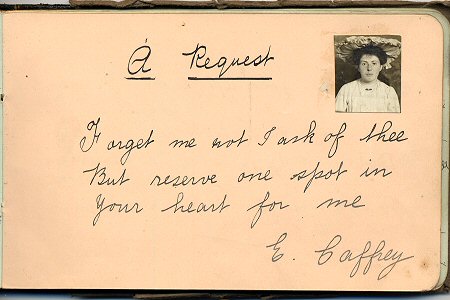 A Request
Forget me not I ask of thee
But reserve one spot in
Your heart for me
E. Caffrey